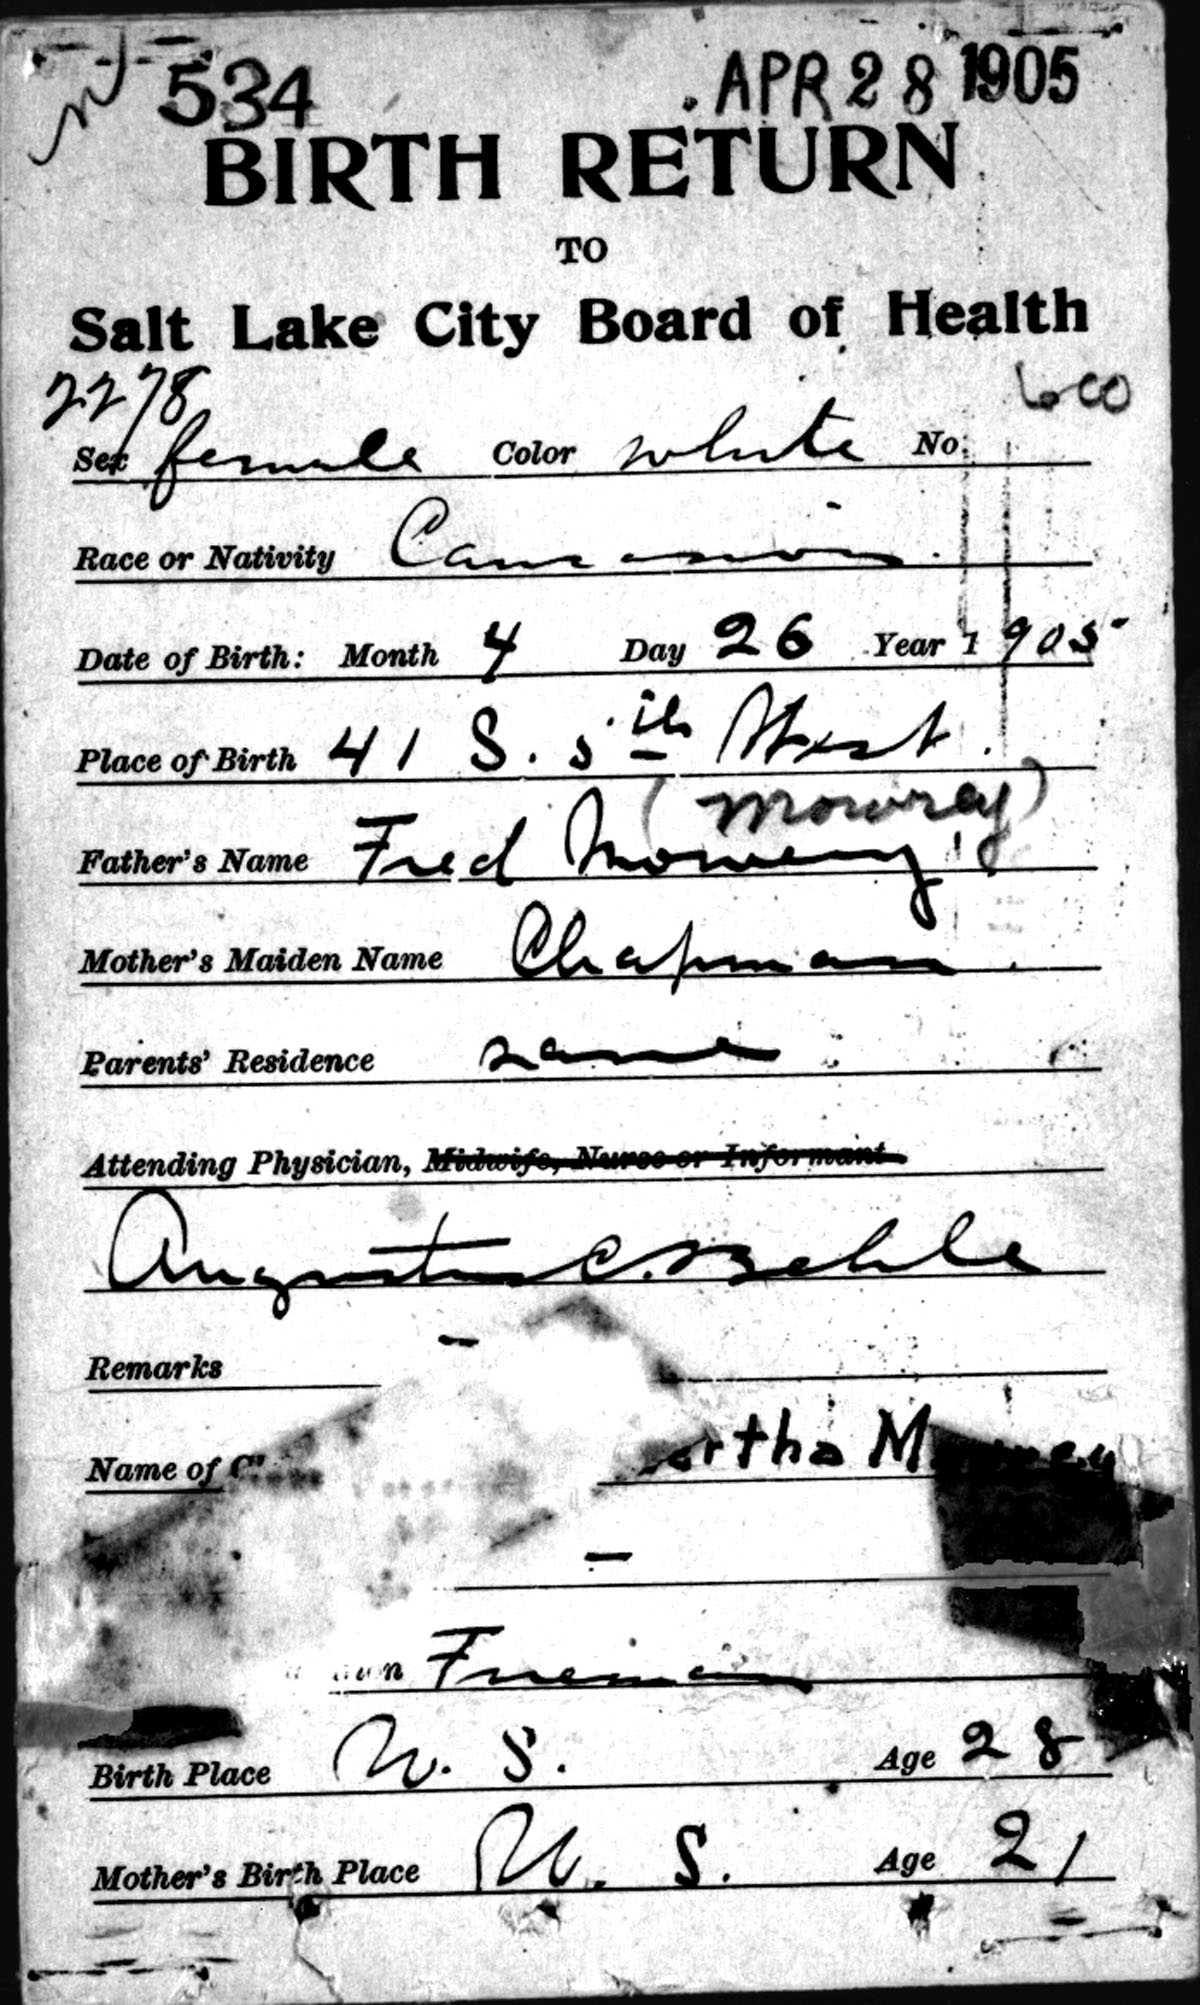 534 APR 28 1905
BIRTH RETURN
TO
Salt Lake City Board of Health
2278 600
Sex female Color white No.
Race or Nativity Caucasian
Date of Birth: Month 4 Day 26 Year 1905
Place of Birth 41 S. 5th West.
(Mowrey)
Father's Name Fred Mowery
Mother's Maiden Name Chapman
Parents' Residence same
Attending Physician, Midwife, Nurse or Informant
Augustus C. Behle
Remarks –
Name of
–
Fireman
Birth Place U. S. Age 28
Mother's Birth Place U. S. Age 21